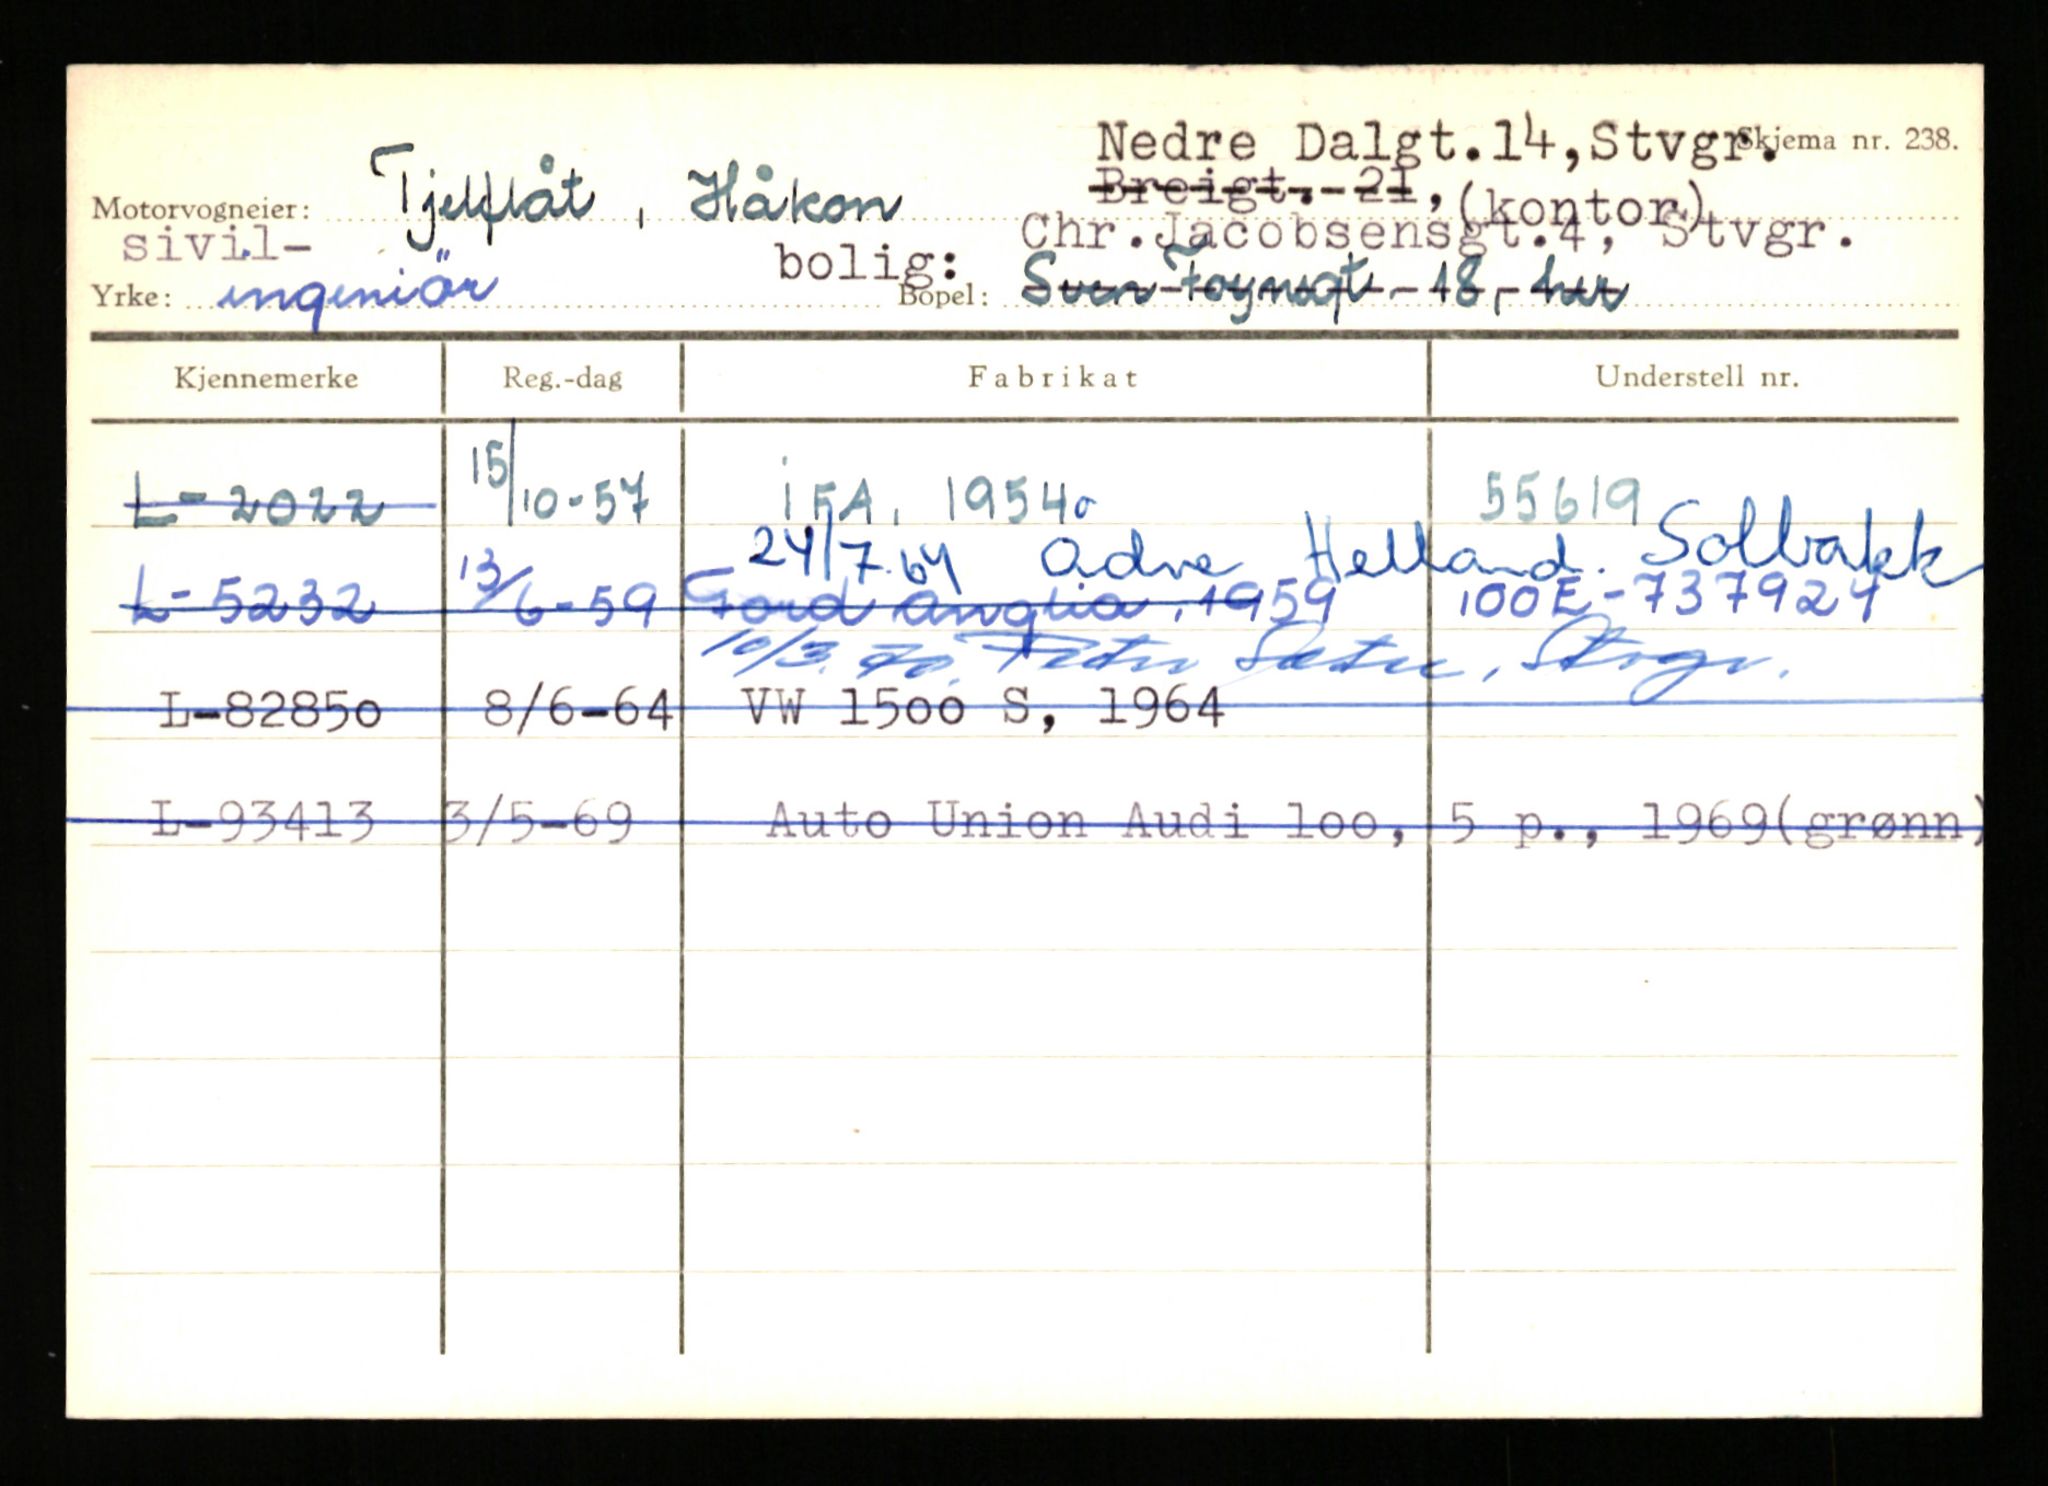 Nedre Dalgt.14,Stvgr.
Skjema nr. 238.
Breigt. 21, (kontor)
Motorvogneier: Tjelflåt, Håkon
sivil-
Chr.Jacobsensgt.4, Stvgr.
bolig:
Yrke: ingeniör
Bopel: Sven Foynsgt. 18, her
Kjennemerke Reg.-dag Fabrikat Understell nr.
L-2022 15/10-57 iFA, 1954 55619
24/7.64 Adne Helland. Solbakk
L-5232 13/6-59 Ford Anglia, 1959 100E-737924
10/3.70. Petter Stvgr.
L-82850 8/6-64 VW 15oo S, 1964
L-93413 3/5-69 Auto Union Audi loo, 5 p., 1969(grønn)